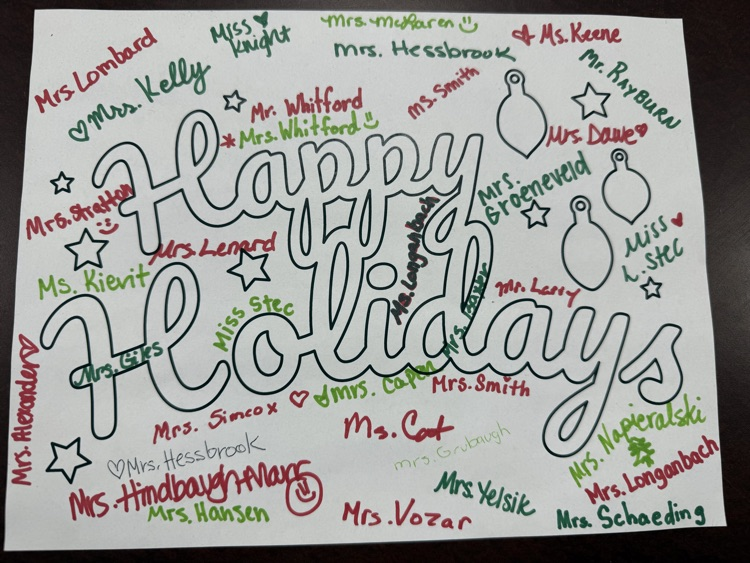 Miss Knight
Mrs. McLaren
Ms. Keene
Mrs. Hessbrook
Mrs. Lombard
Mr. RAYBURN
Mrs. Kelly
Ms. Smith
Mr. Whitford
Mrs. Whitford
Mrs. Dawe
Happy
Mrs. Groeneveld
Mrs. Stratton
Miss L. Stec
Mrs. Lenard
Ms. Kievit
Mr. Larry
Miss Stec
Holidays
Mrs. Giles
Mrs. Alexander
Mrs. Smith
Mrs. Simcox
Mrs. Napieralski
Mrs. Hessbrook
Mrs. Grubaugh
Mrs. Longanbach
Mrs. Yelsik
Mrs. Hansen
Mrs. Vozar
Mrs. Schaeding